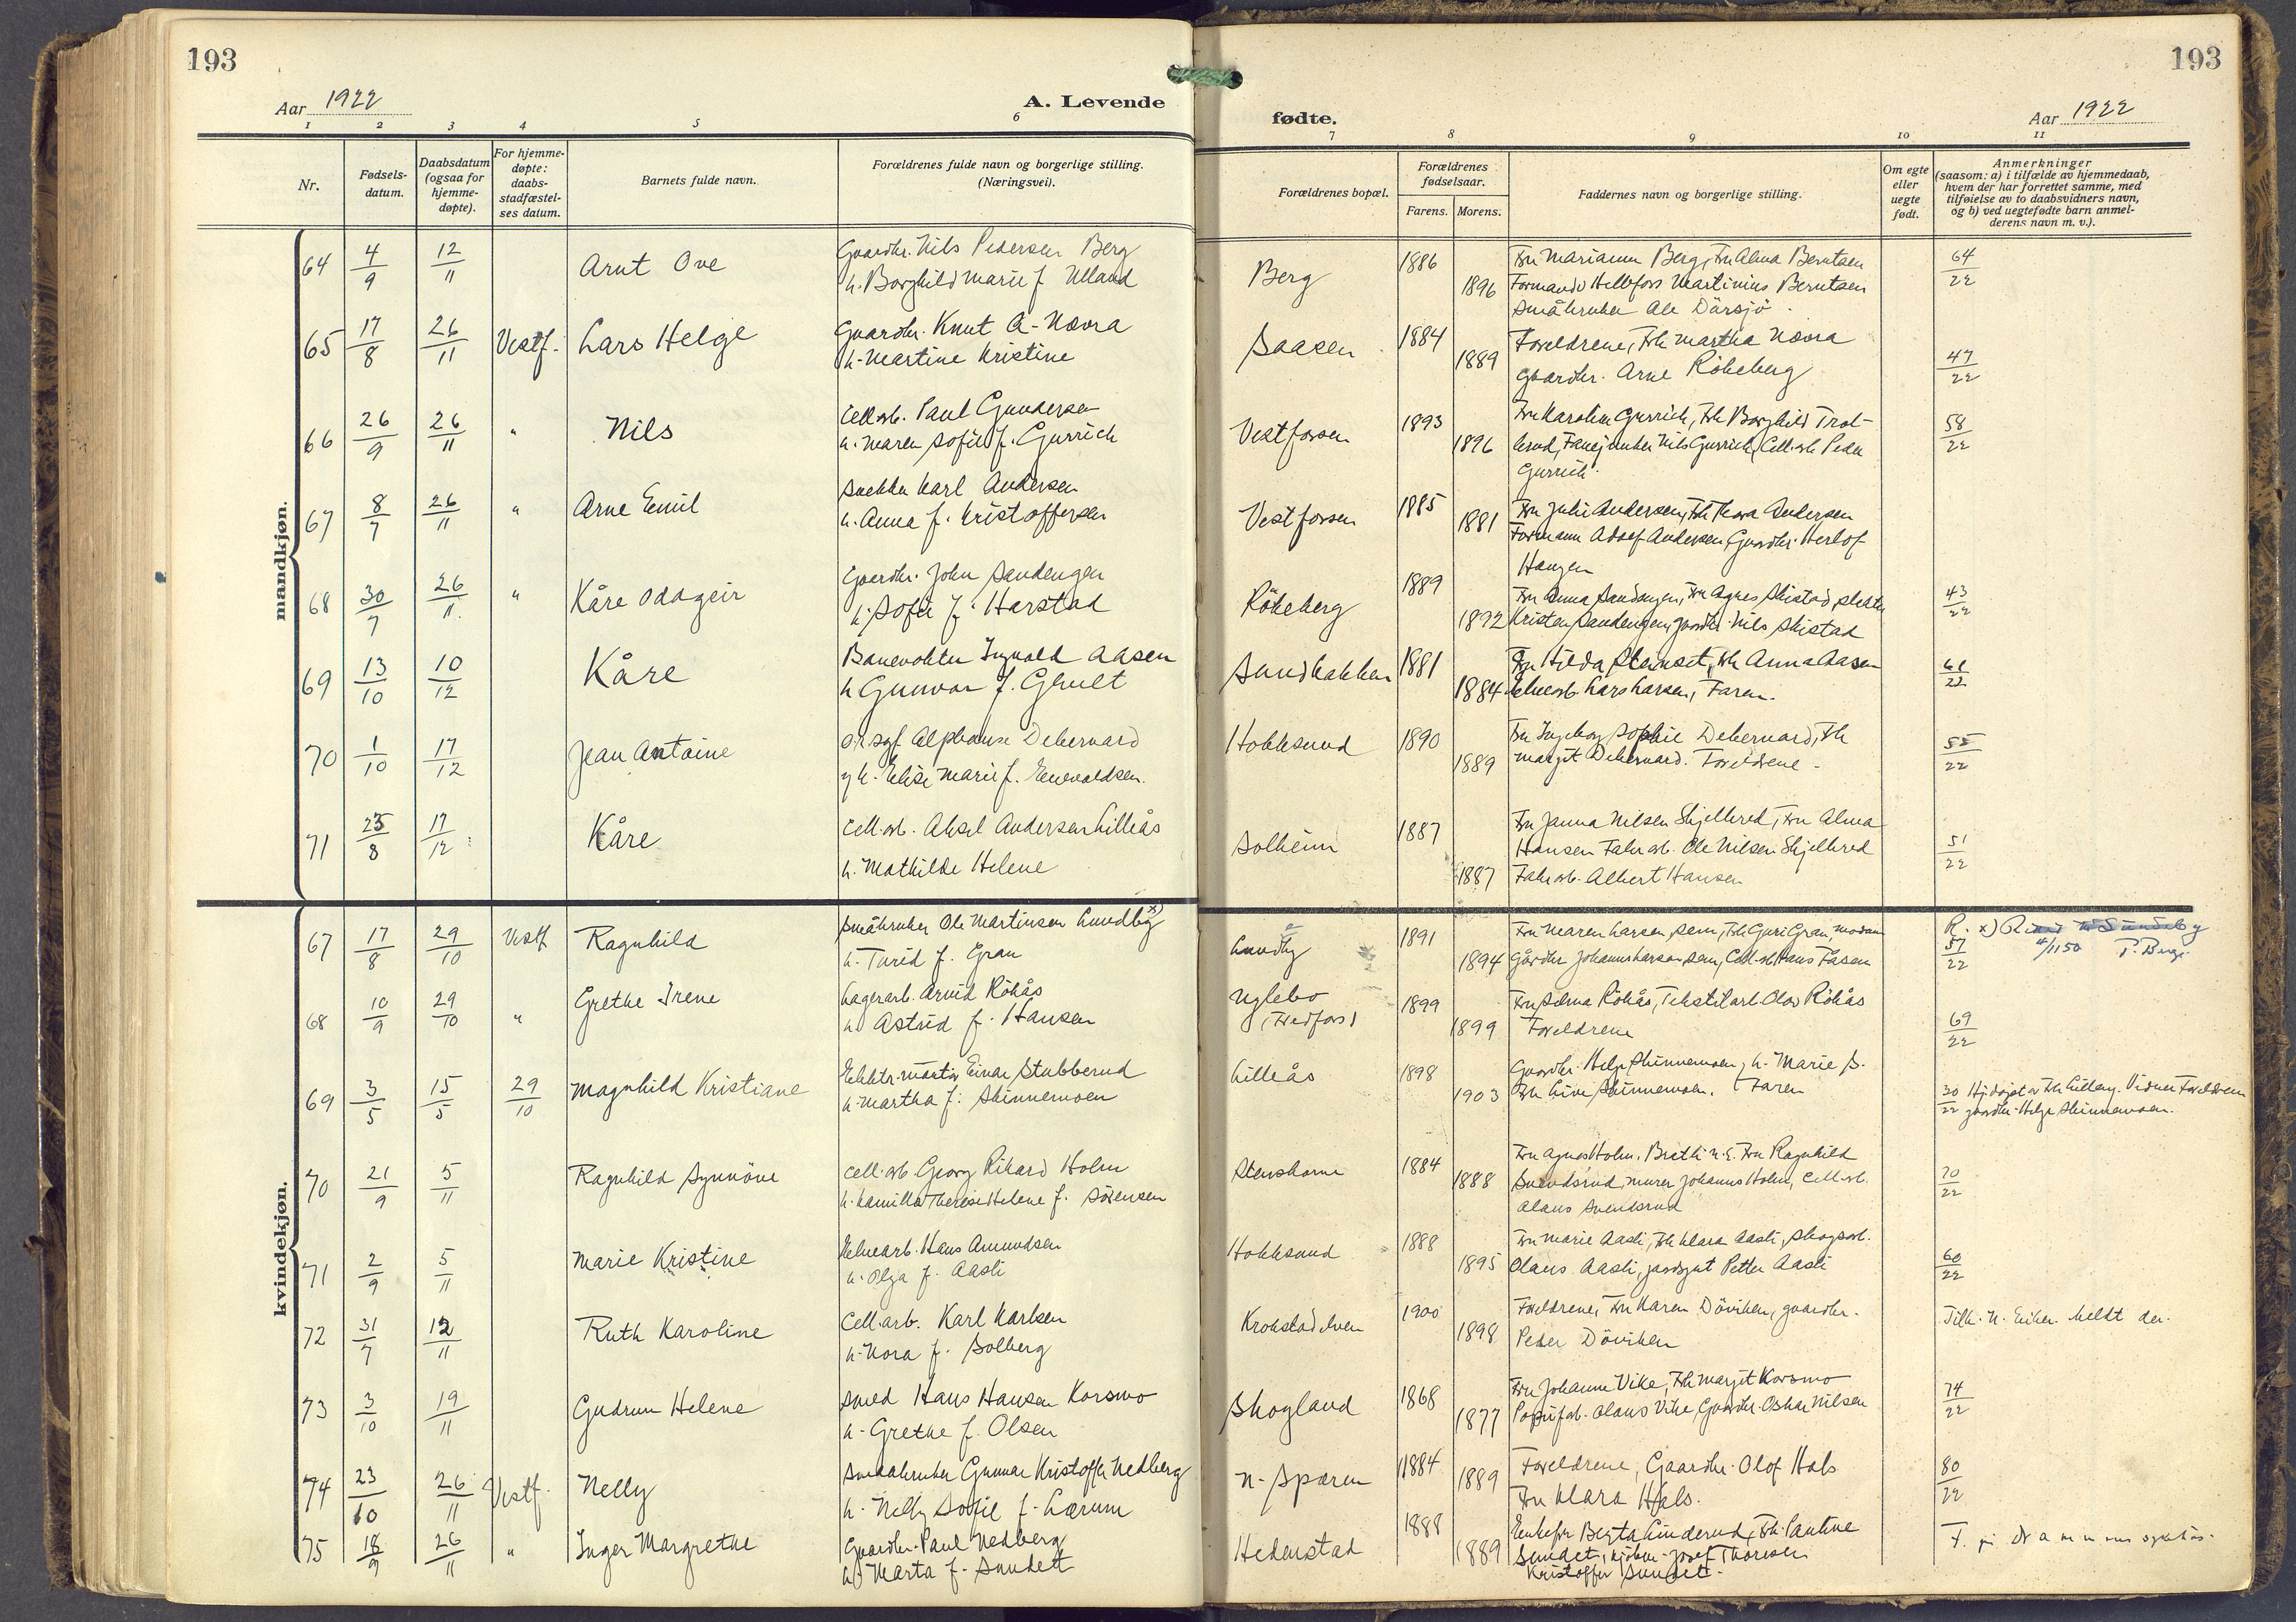 193
193
Aar 1922
A. Levende
fødte.
Aar 1922
1 2 3 4 5 6 7 8 9 10 11
Nr.
Fødsels-
datum.
Daabsdatum
(ogsaa for
hjemme-
døpte).
For hjemme-
døpte:
daabs-
stadfæstel-
ses datum.
Barnets fulde navn.
Forældrenes fulde navn og borgerlige stilling.
(Næringsvei).
Forældrenes bopæl.
Forældrenes
fødselsaar.
Farens. Morens.
Faddernes navn og borgerlige stilling.
Om egte
eller
uegte
født.
Anmerkninger
(saasom: a) i tilfælde av hjemmedaab,
hvem der har forrettet samme, med
tilføielse av to daabsvidners navn,
og b) ved uegtefødte barn anmel-
derens navn m. v.).
mandkjøn.
64 4/9 12/11 Arnt Ove
Gaardbr. Nils Pedersen Berg
h. Borghild Marie f. Ulland
Berg 1886 1896
Fru Marianne Berg, Fru Alma Berntsen
Formand Hellefoss Martinius Berntsen
Småbruker Ole Därsjö
64/22
65 17/8 26/11 Vestf. Lars Helge
Gaardbr. Knut A. Nævra
h. Martine Kristine
Saasen 1884 1889
Foreldrene, Frk Martha Nævra
Gaardbr. Arne Rökeberg
47/22
66 26/9 26/11 " Nils
Cell.arb. Paul Gundersen
h. Maren Sofie f. Gurrich
Vestfossen 1893 1896
Fru Karoline Gurrich, Frk Borghild Trot-
Nils Gurrich, Cell.arb Peder
Gurrich
58/22
67 8/7 26/11 " Arne Emil
Snekker Karl Andersen
h. Anna f. Kristoffersen
Vestfossen 1885 1881
Fru Julie Andersen, Frk Thora Andersen
Formann Adolf Andersen, Gaardbr. Herlof
Haugen
68 30/7 26/11 " Kåre Odageir
Gaardbr. John Sandengen
h. Sofie f. Harstad
Rökeberg 1889 1892
Fru Anna Sandengen, Fru Agnes Skistad,
Kristen Sandengen, gaardbr. Nils Skistad
43/22
69 13/10 10/12 Kåre
Banevokter Ingvald Aasen
h Gunvor f.
Sundbakken 1881 1884
Fru Hilda Stenset, Frk Anna Aasen
Lars Larsen, Faren.
61/22
70 1/10 17/12 Jean Antoine
Alphonse Debernard
h. Elise Marie f. Enevoldsen.
Hokksund 1890 1889
Fru Ingeborg Sophie Debernard, Frk
Margit Debernard. Foreldrene.
55/22
71 25/8 17/12 Kåre
Cell.arb. Aksel Andersen Lilleås
h. Mathilde Helene
Solheim 1887 1887
Fru Janna Nilsen Skjelbred, Fru Alma
Hansen Fabr.arb. Ole Nilsen Skjelbred
Fabr.arb. Albert Hansen
51/22
kvindekjøn.
67 17/8 29/10 Vestf Ragnhild
Småbruker Ole Martinsen Lundby x)
h. Turid f. Gran
Lundby 1891 1894
Fru Maren Larsen, Sem, Frk Guri Gran, Modum
Gårdbr Johannes Larsen, Sem, Cell.arb Hans Fasen
R. x)
57/22 4/11 50 P. Berge
68 10/9 29/10 " Grethe Irene
Lagerarb. Arvid Rökås
h Astrid f. Hansen
Uglebo
(Fredfos)
1899 1899
Fru Selma Rökås, Tekstilarb. Olav Rökås
Foreldrene
69/22
69 3/5 15/5 29/10 Magnhild Kristiane
Elektr.montör Einar Stubberud
h. Martha f. Skinnemoen
Lilleås 1898 1903
Gaardbr. Helge Skinnemoen, h. Marie S.
Frk Live Skinnemoen. Faren
30/22 Hj.döpt av Frk. Vidner Foreldrene
gaardbr. Helge Skinnemoen.
70 21/9 5/11 Ragnhild Synnöve
Cell.arb Georg Rikard Holm
h. Kamilla Therese Helene f. Sörensen
Stenshorne 1884 1888
Fru Agnes Holm, Fru Ragnhild
Svendsrud, murer Johannes Holm, Cell.arb.
Olaus Svendsrud
70/22
71 2/9 5/11 Marie Kristine
Hans Amundsen
h. Olga f. Aasli
Hokksund 1888 1895
Fru Marie Aasli, Frk Klara Aasli, Skogsarb.
Olaus Aasli, gaardgut Petter Aasli
60/22
72 31/7 12/11 Ruth Karoline
Cell.arb. Karl Karlsen
h. Nora f. Solberg
Krokstadelven 1900 1898
Foreldrene, Fru Karen Döviken, gaardbr.
Peder Döviken
Tilh. N. Eiker. Meldt der.
73 3/10 19/11 Gudrun Helene
Smed Hans Hansen Korsmo
h. Grethe f. Olsen
Skogland 1868 1877
Fru Johanne Vike, Frk Margit Korsmo
Papirfab. Olaus Vike, Gaardbr. Oskar Nilsen
74/22
74 23/10 26/11 Vestf. Nelly
Smaabruker Gunnar Kristoffer Nedberg
h. Nelly Sofie f. Lærum
N. Sparen 1884 1889
Foreldrene, Gaardbr. Olof Hals
Fru Klara Hals.
80/22
75 18/9 26/11 " Inger Margrethe
Gaardbr. Paul Nedberg
h. Marta f. Sundet
Hedenstad 1888 1889
Enkefru Berta Linderud, Frk. Pauline
Sundet, Josef Thoresen
Kristoffer Sundet.
F. på Drammens sykehus.